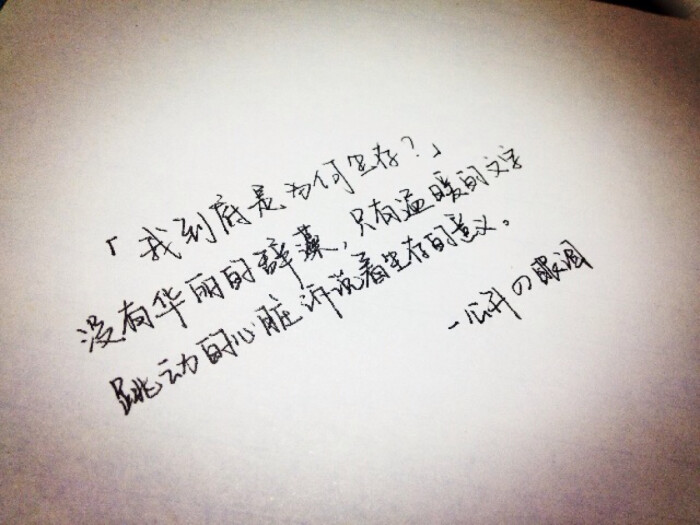 「我到底是为何生存？」
没有华丽的辞藻，只有温暖的文字
跳动的心脏诉说着生存的意义。
の眼泪